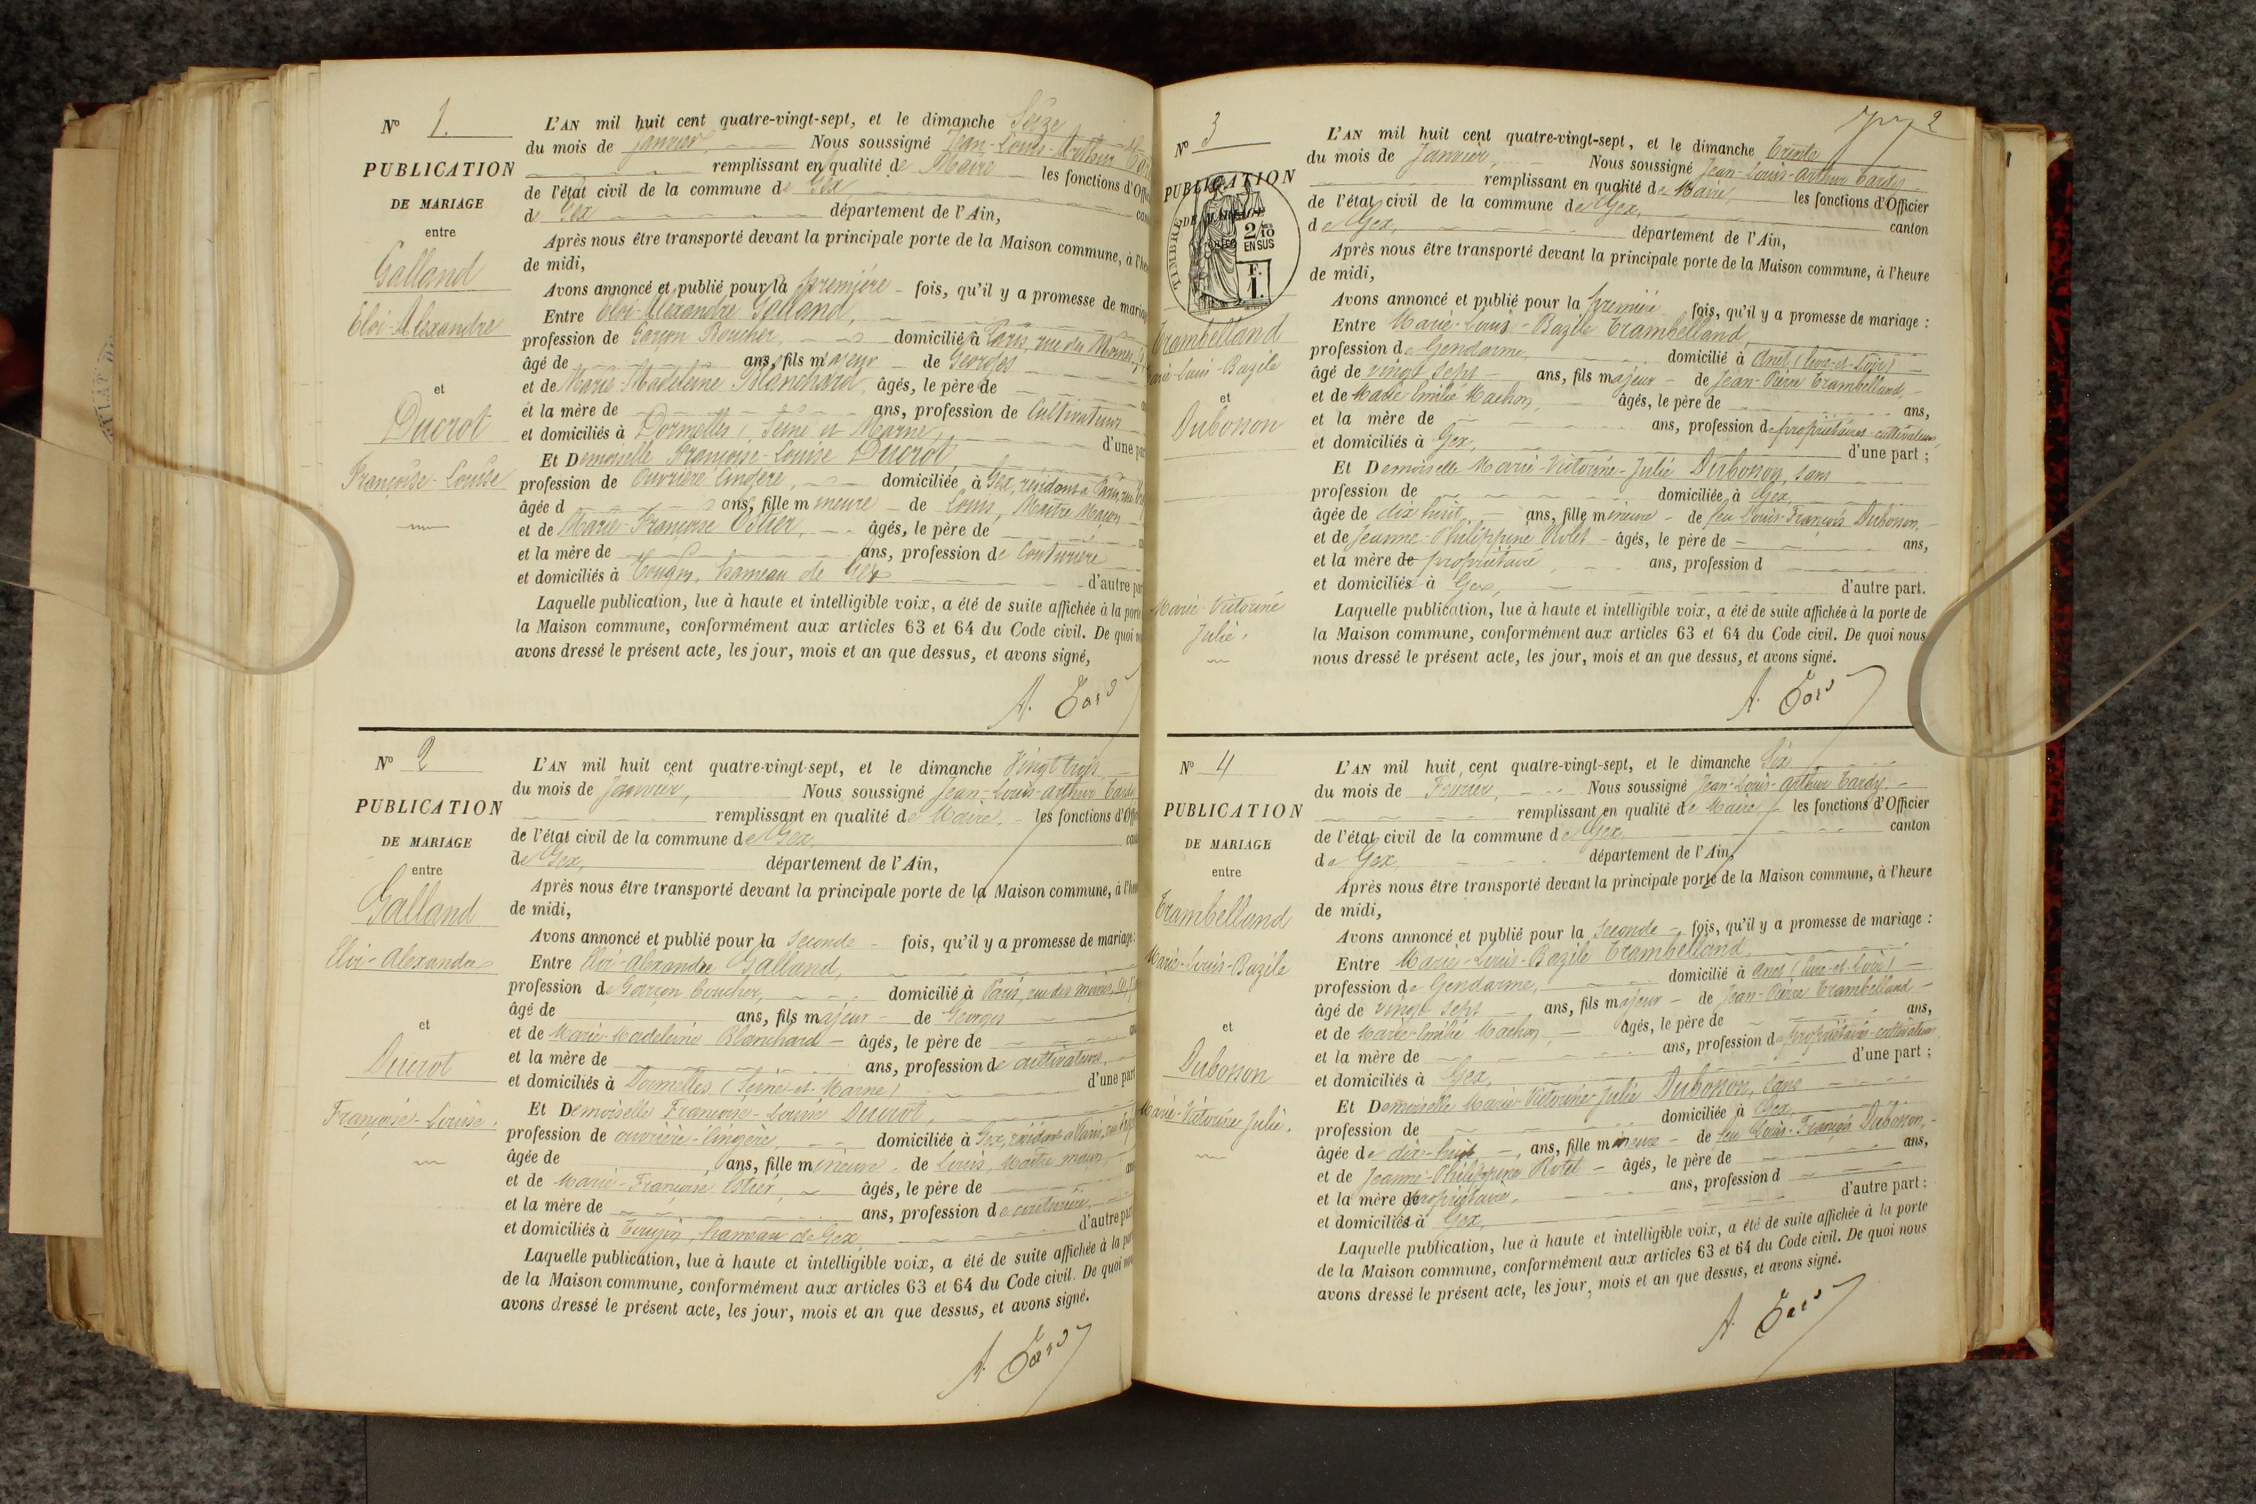 N° 1.
PUBLICATION
DE MARIAGE
entre
Galland
Eloi-Alexandre
et
Ducrot
Françoise-Louise
L'AN mil huit cent quatre-vingt-sept, et le dimanche Seize
du mois de Janvier, Nous soussigné Jean-Louis-Arthur
remplissant en qualité de Maire les fonctions d'Offi
de l'état civil de la commune de Gex
de Gex département de l'Ain,
Après nous être transporté devant la principale porte de la Maison commune, à l'he
de midi,
Avons annoncé et publié pour la première fois, qu'il y a promesse de mariag
Entre Eloi-Alexandre Galland,
profession de Garçon Boucher, domicilié à Paris, rue du
âgé de ans, fils majeur de Georges
et de Marie-Madeleine Blanchard, âgés, le père de
et la mère de ans, profession de Cultivateurs
et domiciliés à Dormelles, Seine et Marne, d'une par
Et Demoiselle Françoise-Louise Ducrot
profession de Ouvrière lingère, domiciliée à Gex, résidant à Paris, rue
âgée d ans, fille mineure de Louis, Maître Maçon
et de Marie-Françoise Estier, âgés, le père de
et la mère de ans, profession de Couturière
et domiciliés à Tougin, hameau de Gex d'autre par
Laquelle publication, lue à haute et intelligible voix, a été de suite affichée à la porte
la Maison commune, conformément aux articles 63 et 64 du Code civil. De quoi n
avons dressé le présent acte, les jour, mois et an que dessus, et avons signé,
A. Tardy
N° 2
PUBLICATION
DE MARIAGE
entre
Galland
Eloi-Alexandre
et
Ducrot
Françoise-Louise.
L'AN mil huit cent quatre-vingt-sept, et le dimanche Vingt trois
du mois de Janvier, Nous soussigné Jean-Louis-Arthur Tardy
remplissant en qualité de Maire les fonctions d'Offi
de l'état civil de la commune de Gex, can
de Gex, département de l'Ain,
Après nous être transporté devant la principale porte de la Maison commune, à l'heu
de midi,
Avons annoncé et publié pour la Seconde fois, qu'il y a promesse de mariage:
Entre Eloi-Alexandre Galland,
profession de Garçon boucher, domicilié à Paris, rue des
âgé de ans, fils majeur de Georges
et de Marie-Madeleine Blanchard âgés, le père de an
et la mère de ans, profession de cultivateurs,
et domiciliés à Dormelles (Seine-et-Marne) d'une part
Et Demoiselle Françoise-Louise Ducrot,
profession de ouvrière-lingère domiciliée à Gex, résidant à Paris, rue
âgée de ans, fille mineure de Louis, Maître maçon
et de Marie-Françoise Estier, âgés, le père de ans
et la mère de ans, profession de couturière,
et domiciliés à Tougin, hameau de Gex, d'autre part
Laquelle publication, lue à haute et intelligible voix, a été de suite affichée à la port
de la Maison commune, conformément aux articles 63 et 64 du Code civil. De quoi nou
avons dressé le présent acte, les jour, mois et an que dessus, et avons signé.
A. Tardy
2
N° 3
PUBLICATION
DE MARIAGE
TIMBRE
2/10
EN SUS
F.
1.
Trambelland
Marie-Louis-Bazile
et
Dubosson
Marie-Victorine
Julie.
L'AN mil huit cent quatre-vingt-sept, et le dimanche Trente
du mois de Janvier, Nous soussigné Jean-Louis-Arthur Tardy
remplissant en qualité de Maire, les fonctions d'Officier
de l'état civil de la commune de Gex, canton
de Gex, département de l'Ain,
Après nous être transporté devant la principale porte de la Maison commune, à l'heure
de midi,
Avons annoncé et publié pour la première fois, qu'il y a promesse de mariage :
Entre Marie-Louis-Bazile Trambelland,
profession de Gendarme domicilié à Anet (Eure-et-Loir)
âgé de vingt sept ans, fils majeur de Jean-Pierre Trambelland,
et de Marie Emilie Machon, âgés, le père de ans,
et la mère de ans, profession de propriétaires-cultivateurs,
et domiciliés à Gex, d'une part ;
Et Demoiselle Marie-Victorine-Julie Dubosson, sans
profession de domiciliée à Gex,
âgée de dix huit, ans, fille mineure de feu Louis-François Dubosson,
et de Jeanne-Philippine Rolet âgés, le père de ans,
et la mère de propriétaire ans, profession d
et domiciliés à Gex, d'autre part.
Laquelle publication, lue à haute et intelligible voix, a été de suite affichée à la porte de
la Maison commune, conformément aux articles 63 et 64 du Code civil. De quoi nous
nous dressé le présent acte, les jour, mois et an que dessus, et avons signé.
A. Tardy
N° 4
PUBLICATION
DE MARIAGE
entre
Trambelland
Marie-Louis-Bazile
et
Dubosson
Marie-Victorine Julie.
L'AN mil huit cent quatre-vingt-sept, et le dimanche Six
du mois de Février, Nous soussigné Jean-Louis-Arthur Tardy,
remplissant en qualité de Maire les fonctions d'Officier
de l'état civil de la commune de Gex canton
de Gex département de l'Ain,
Après nous être transporté devant la principale porte de la Maison commune, à l'heure
de midi,
Avons annoncé et publié pour la Seconde fois, qu'il y a promesse de mariage :
Entre Marie-Louis-Bazile Trambelland,
profession de Gendarme, domicilié à Anet (Eure-et-Loir)
âgé de vingt sept ans, fils majeur de Jean-Pierre Trambelland
et de Marie-Emilie Machon, âgés, le père de ans,
et la mère de ans, profession de propriétaires-cultivateurs
et domiciliés à Gex, d'une part ;
Et Demoiselle Marie Victorine Julie Dubosson, sans
profession de domiciliée à Gex,
âgée de dix-huit, ans, fille mineure de feu Louis-François Dubosson,
et de Jeanne-Philippine Rolet âgés, le père de ans,
et la mère de propriétaire, ans, profession d
et domiciliés à Gex, d'autre part :
Laquelle publication, lue à haute et intelligible voix, a été de suite affichée à la porte
de la Maison commune, conformément aux articles 63 et 64 du Code civil. De quoi nous
avons dressé le présent acte, les jour, mois et an que dessus, et avons signé.
A. Tardy